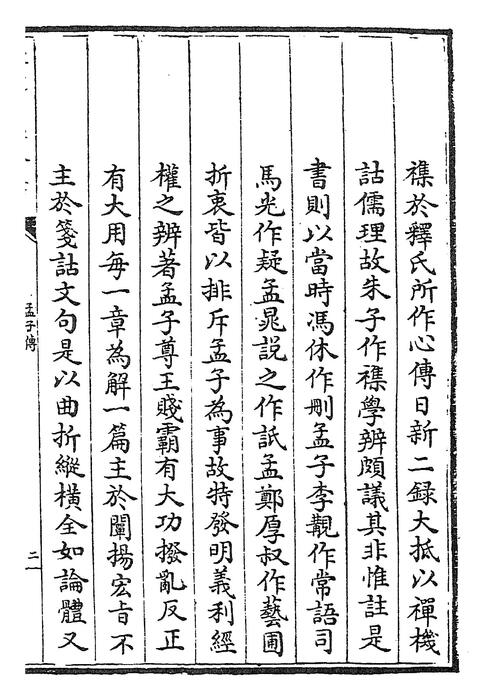 襍於釋氏所作心傳日新二録大抵以禪機
詁儒理故朱子作襍學辨頗議其非惟註是
書則以當時馮休作刪孟子李覯作常語司
馬光作疑孟晁説之作詆孟鄭厚叔作藝圃
折衷皆以排斥孟子為事故特發明義利經
權之辨著孟子尊王賤霸有大功撥亂反正
有大用每一章為解一篇主於闡揚宏㫖不
主於箋詁文句是以曲折縱横全如論體又
孟子傳
二